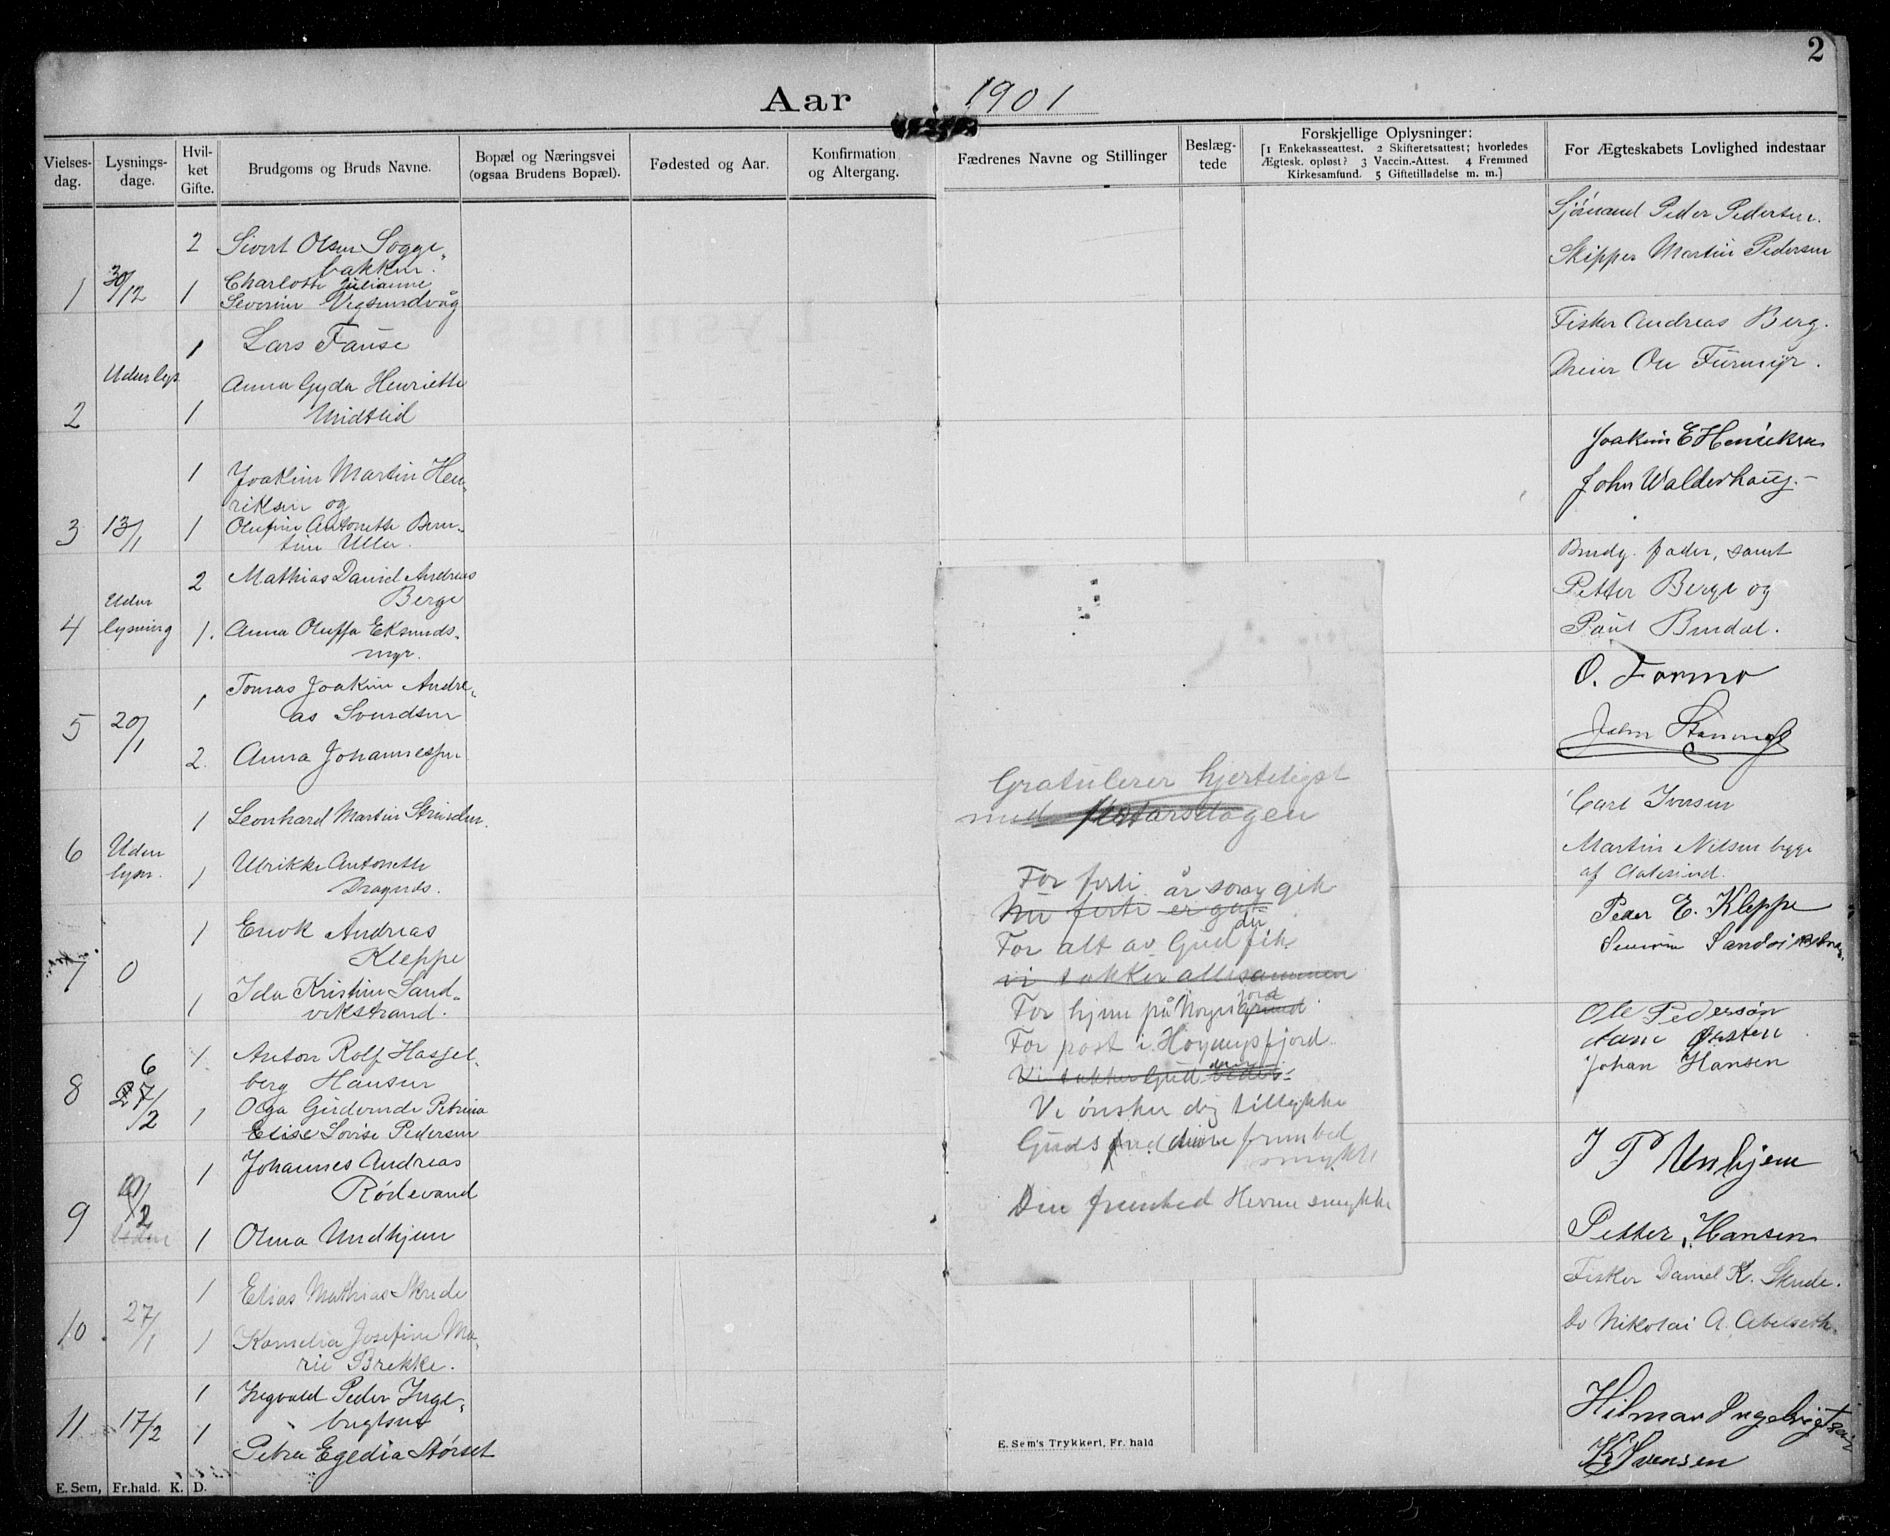 2
Aar 1901
Vielses-dag.
Lysnings-dage.
Hvil-ket Gifte.
Brudgoms og Bruds Navne.
Bopæl og Næringsvei (ogsaa Brudens Bopæl).
Fødested og Aar.
Konfirmation og Altergang.
Fædrenes Navne og Stillinger
Beslæg-tede
Forskjellige Oplysninger:
[1 Enkekasseattest. 2 Skifteretsattest; hvorledes
Ægtesk. opløst? 3 Vaccin.-Attest. 4 Fremmed
Kirkesamfund. 5 Giftetilladelse m. m.]
For Ægteskabets Lovlighed indestaar
2 Sivert Olsen Sogge-
bakken.
1 30/12 1 Charlotte Julianne
Severine Vegsundvåg
Sjömand Peder Pedersen.
Skipper Martin Pedersen
1 Lars Fause
Uden lys.
Anna Gyda Henriette
2 1 Midtlid
Fisker Andreas Berg.
Dreier Ole Furmyr.
1 Joakim Martin Hen-
riksen og
3 13/1 1 Olufine Antonette Bern-
tine Ulla.
Joakim E Henriksen
John Walderhaug.-
2 Mathias Daniel Andreas
Berge
4 Uden lysning 1. Anna Oluffa Eksunds-
myr.
Brudg. fader, samt
Petter Berge og
Paul Brudal.
1 Tomas Joakim Andre-
as Svendsen
5 20/1
2. Anna Johannespn
O. Formo
John
1 Leonhard Martin
6 Uden lysn.
1 Ulrikke Antonette
Carl Iversen
Martin Nilsen begge
af Aalesund.
1 Enok Andreas
Kleppe
7 0
1 Ida Kristine Sand-
vikstrand.
Peder E. Kleppe
1 Anton Rolf Hassel-
berg Hansen
8 6 27/2 1 Olga Petrina
Elise Lovise Pedersen
Ole Pedersøn
Johan Hansen
1 Johannes Andreas
Rödevand
9 10/2 Uden
1 Olma Undhjem
J P Unhjem
Petter, Hansen
1 Elias Mathias Skrede
10. 27/1
1 Kornelia Josefine Ma-
rie Brekke.
Fisker Daniel K. Skrede.
Do Nikolai A. Abelseth.
1 Ingvald Peder Inge-
brigtsen
11 17/2 1 Petra Egedia Störset
Hilmar Ingebrigtsen
K. Svensen
Gratulerer hjerteligst
med flotarsdagen
For forti år som gik
Nu forti er gåt
For alt av Gud du fik
vi takker alle sammen
For hjem på Norges jord grund
For post i Höyungsfjord.
Vi takker Gud
Vi önsker dig tillykke
Guds fred din fremtid
smykke
Din fremtid Herren smykke
E. Sem's Trykkeri, Fr. hald
E. Sem, Fr.hald. K. D.